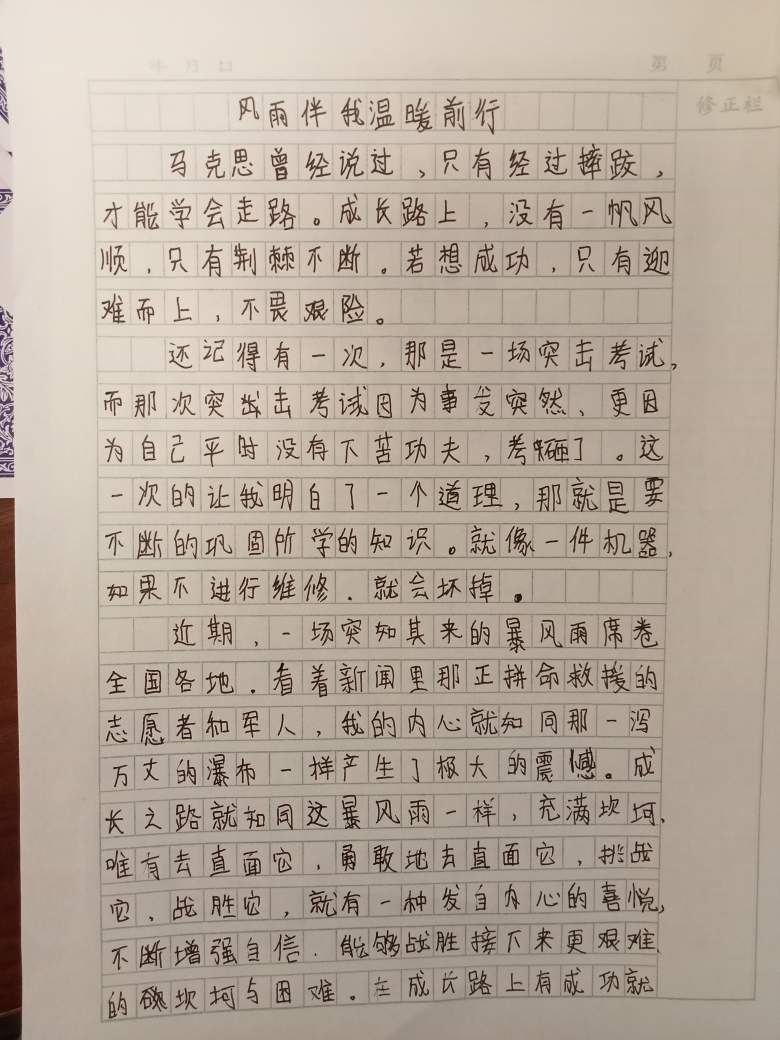 年 月 日 第 页
修正栏
风雨伴我温暖前行
马克思曾经说过，只有经过摔跤，
才能学会走路。成长路上，没有一帆风
顺，只有荆棘不断。若想成功，只有迎
难而上，不畏艰险。
还记得有一次，那是一场突击考试，
而那次突击考试因为事发突然、更因
为自己平时没有下苦功夫，考砸了。这
一次的让我明白了一个道理，那就是要
不断的巩固所学的知识。就像一件机器，
如果不进行维修．就会坏掉。
近期，一场突如其来的暴风雨席卷
全国各地．看着新闻里那正拼命救援的
志愿者和军人，我的内心就如同那一泻
万丈的瀑布一样产生了极大的震憾。成
长之路就如同这暴风雨一样，充满坎坷、
唯有去直面它．勇敢地去直面它，挑战
它、战胜它，就有一种发自内心的喜悦，
不断增强自信．能够战胜接下来更艰难
的坎坷与困难。在成长路上有成功就